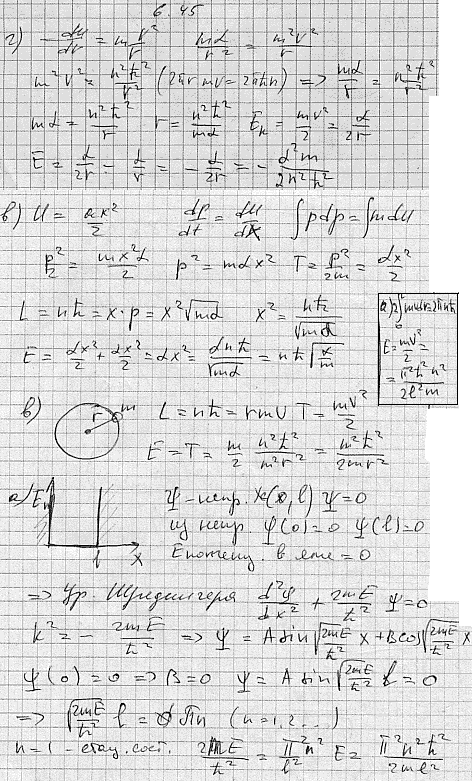 6.45
г) -dU/dr = m v²/r   mα/r² = m²v²/r
m²v² = n²ħ²/r² (2πr mv = 2πħn) => mα/r = n²ħ²/r²
mα = n²ħ²/r   r = n²ħ²/mα   Eк = mv²/2 = α/2r
E = α/2r - α/r = -α/2r = -α²m/2n²ħ²
в) U = αx²/2   dp/dt = dU/dx   ∫pdp = ∫mdU
p²/2 = mx²α/2   p² = mαx²   T = p²/2m = αx²/2
L = nħ = x·p = x²√mα   x² = nħ/√mα
E = αx²/2 + αx²/2 = αx² = αnħ/√mα = nħ√α/m
E = mv²/2 =
= π²ħ²n²/2l²m
в) r m L = nħ = rmv   T = mv²/2
E = T = m/2 n²ħ²/m²r² = n²ħ²/2mr²
а) E l x
Ψ - непр. X∈(0, l) Ψ=0
из непр. Ψ(0)=0 Ψ(l)=0
Eпотенц. в яме = 0
=> Ур. Шредингера d²Ψ/dx² + 2mE/ħ² Ψ=0
k² = -2mE/ħ² => Ψ = A sin √2mE/ħ² x + B cos √2mE/ħ² x
Ψ(0) = 0 => B=0   Ψ = A sin √2mE/ħ² l = 0
=> √2mE/ħ² l = πn (n=1,2...)
n=1 - стац. сост.   2mE/ħ² = π²n²/l²   E = π²n²ħ²/2ml²